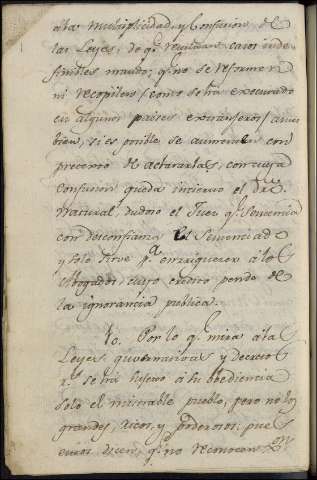 a la Multiplicidad, y Confusion de
las Leyes, de qe resultan casos inde-
finibles mando; qe no se reformen
ni recopilen, (como se ha executado
en algunos paises extranjeros) antes
bien, si es posible se aumenten con
pretexto de aclararlas, con cuya
confusion queda incierto el dro
natural, dudoso el Juez qe Sentencia
con desconfianza el Sentenciado
y solo sirve pa enriquezer a los
Abogados, cuyo credito pende de
la ignorancia publica.
10. Por lo qe mira a las
Leyes guvernativas y decretos
Rs se hà sugeto a su obediencia
solo el miserable pueblo, pero no los
grandes, ricos, y poderosos; pues
estos dicen, qe no reconocen